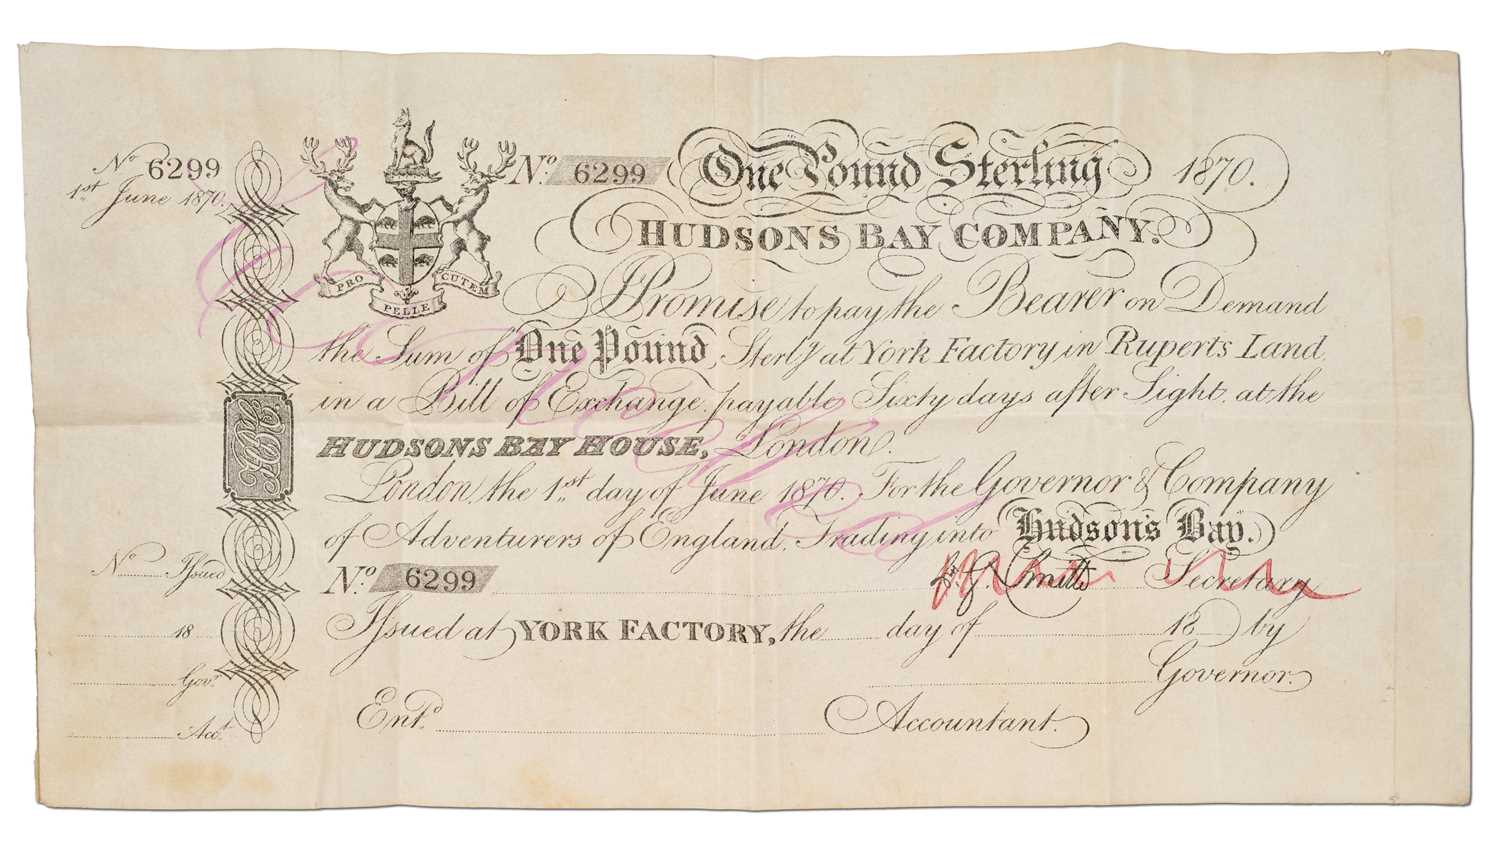 No. 6299
1st June 1870.
No. 6299 One Pound Sterling 1870.
PRO PELLE CUTEM
HUDSONS BAY COMPANY.
I Promise to pay the Bearer on Demand
the Sum of One Pound Sterlg. at York Factory in Ruperts Land
in a Bill of Exchange payable Sixty days after Sight at the
HUDSONS BAY HOUSE, London.
London, the 1st day of June 1870. For the Governor & Company
of Adventurers of England, Trading into Hudson's Bay.
No. 6299 Smith Secretary
Issued at YORK FACTORY, the day of 18 by
Governor.
Entd. Accountant.
No. Issued
18
Govr.
Acct.
Cancelled